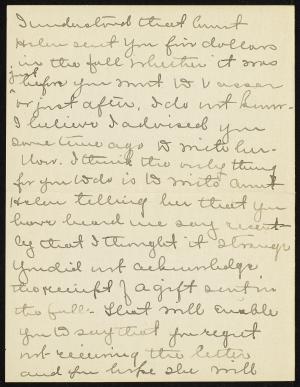 I understood that Aunt
Helen sent you five dollars
in the fall whether it was
just
before you went to Vassar
or just after, I do not know.
I believe I advised you
some time ago to write her.
Now. I think the only thing
for you to do is to write Aunt
Helen telling her that you
have heard me say recent-
ly that I thought it strange
you did not acknowledge
the receipt of a gift sent in
the fall. That will enable
you to say that you regret
not receiving the letter
and you hope she will